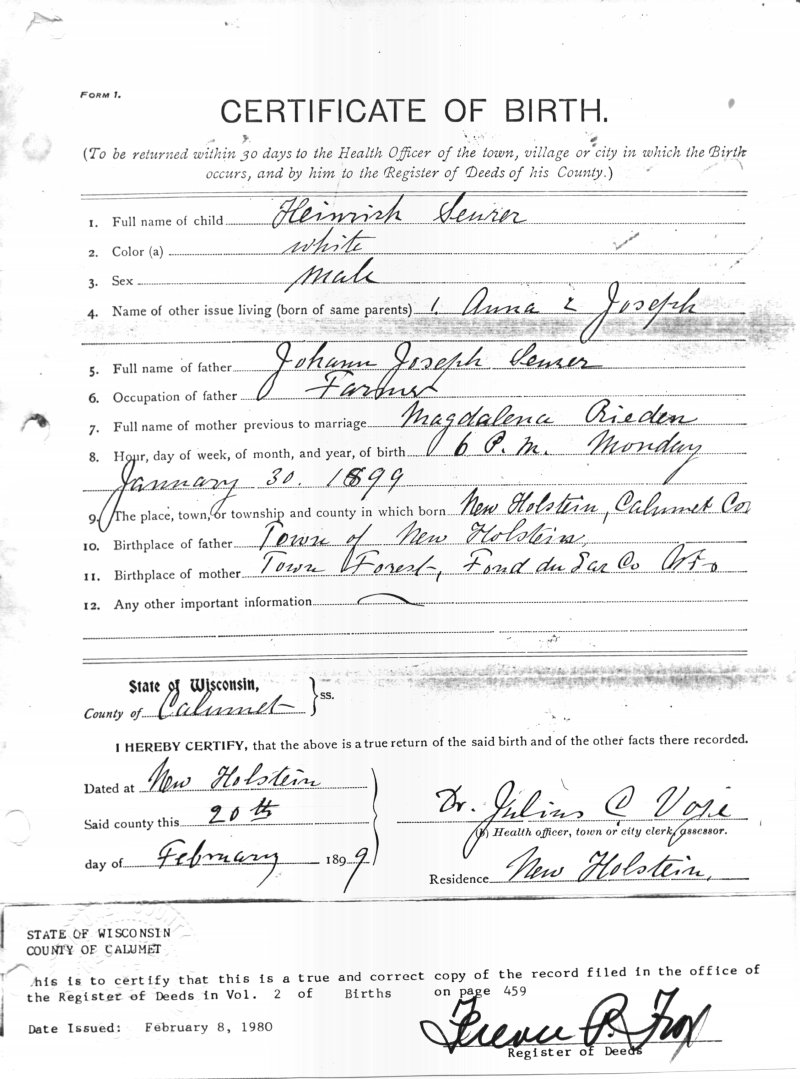 FORM 1.
CERTIFICATE OF BIRTH.
(To be returned within 30 days to the Health Officer of the town, village or city in which the Birth
occurs, and by him to the Register of Deeds of his County.)
1. Full name of child Heinrich Seurer
2. Color (a) white
3. Sex male
4. Name of other issue living (born of same parents) 1. Anna 2 Joseph
5. Full name of father Johann Joseph Seurer
6. Occupation of father Farmer
7. Full name of mother previous to marriage Magdalena Rieden
8. Hour, day of week, of month, and year, of birth 6 P. M. Monday
January 30. 1899
9. The place, town, or township and county in which born New Holstein, Calumet Co
10. Birthplace of father Town of New Holstein,
11. Birthplace of mother Town Forest, Fond du Lac Co Wis
12. Any other important information
State of Wisconsin,
County of Calumet } ss.
I HEREBY CERTIFY, that the above is a true return of the said birth and of the other facts there recorded.
Dated at New Holstein
Said county this 20th
day of February 1899
Dr. Julius C Voje
(b) Health officer, town or city clerk, assessor.
Residence New Holstein,
STATE OF WISCONSIN
COUNTY OF CALUMET
his is to certify that this is a true and correct copy of the record filed in the office of
the Register of Deeds in Vol. 2 of Births on page 459
Date Issued: February 8, 1980
Register of Deeds